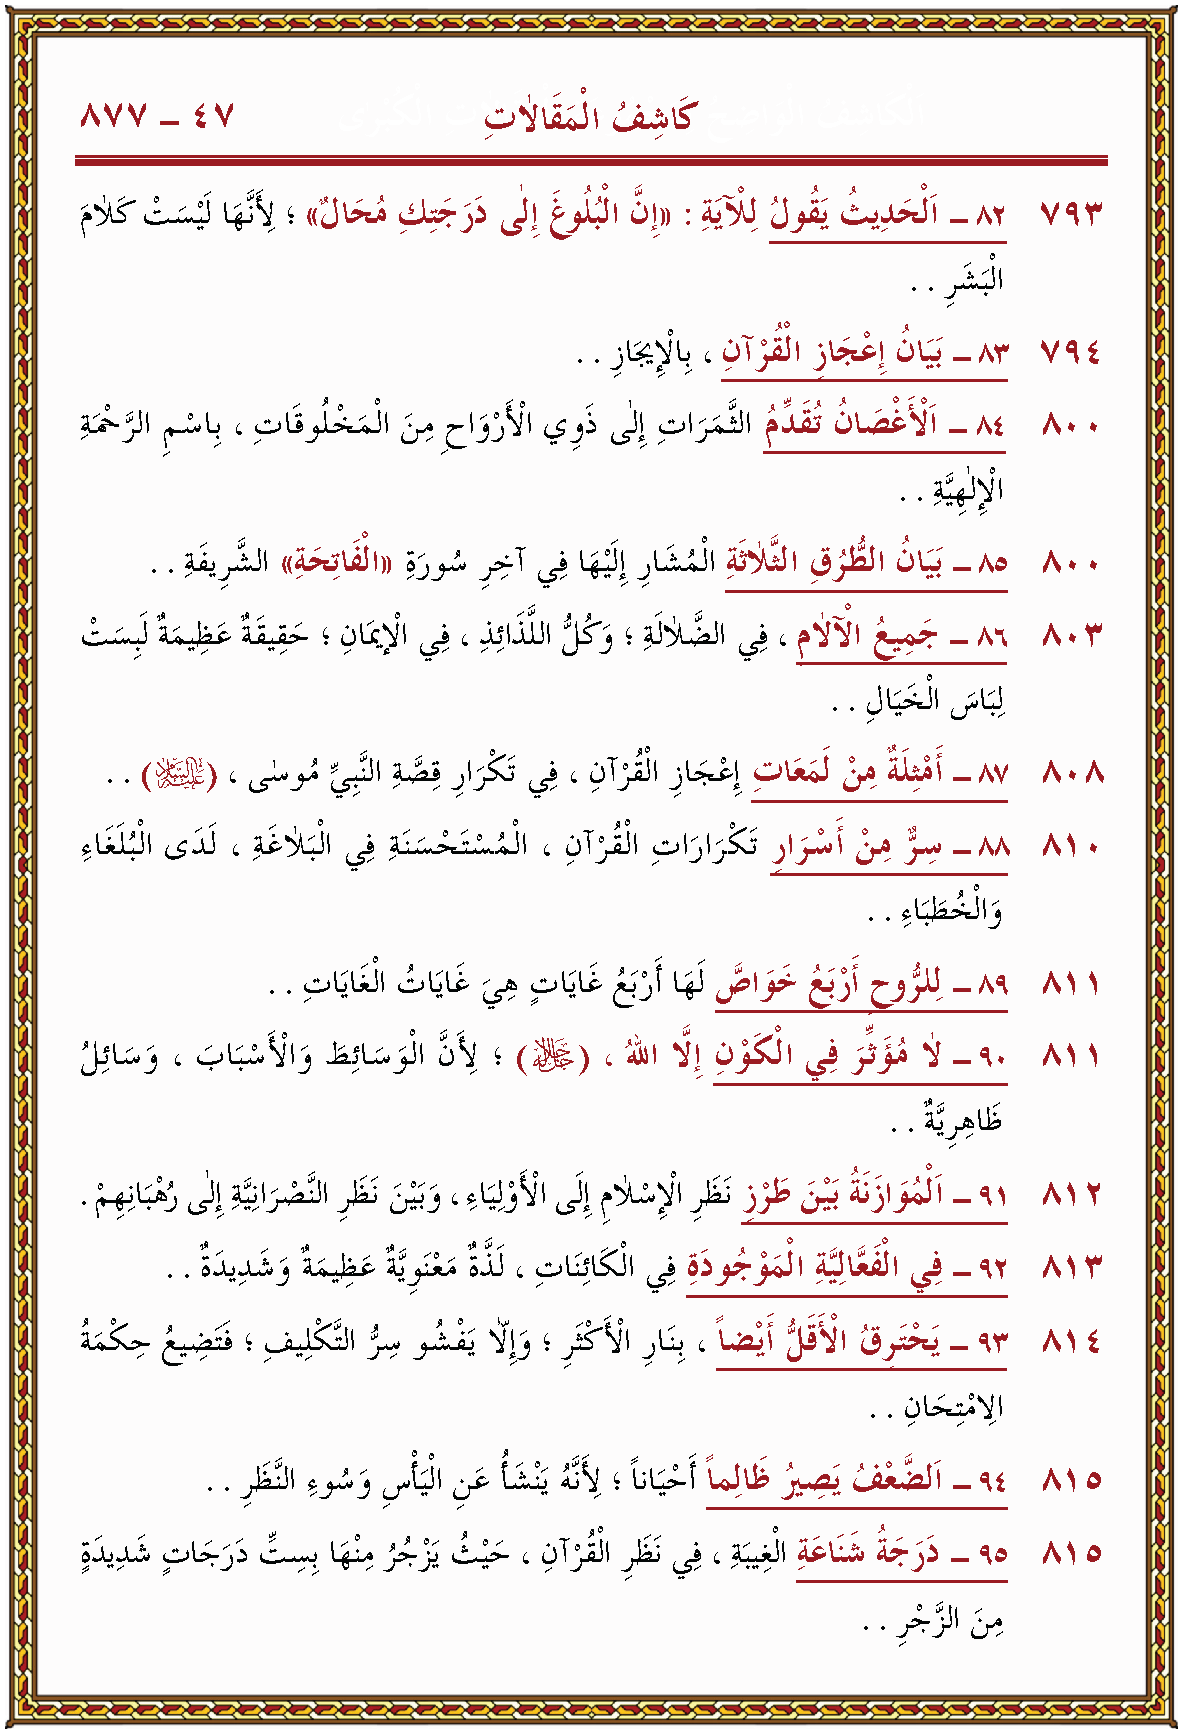 كَاشِفُ الْمَقَالَاتِ ٤٧ ــ ٨٧٧
٧٩٣ ٨٢ ــ اَلْحَدِيثُ يَقُولُ لِلْآيَةِ : «إِنَّ الْبُلُوغَ إِلٰى دَرَجَتِكِ مُحَالٌ» ؛ لِأَنَّهَا لَيْسَتْ كَلَامَ
الْبَشَرِ . .
٧٩٤ ٨٣ ــ بَيَانُ إِعْجَازِ الْقُرْآنِ ، بِالْإِيجَازِ . .
٨٠٠ ٨٤ ــ اَلْأَغْصَانُ تُقَدِّمُ الثَّمَرَاتِ إِلٰى ذَوِي الْأَرْوَاحِ مِنَ الْمَخْلُوقَاتِ ، بِاسْمِ الرَّحْمَةِ
الْإِلٰهِيَّةِ . .
٨٠٠ ٨٥ ــ بَيَانُ الطُّرُقِ الثَّلَاثَةِ الْمُشَارِ إِلَيْهَا فِي آخِرِ سُورَةِ «الْفَاتِحَةِ» الشَّرِيفَةِ . .
٨٠٣ ٨٦ ــ جَمِيعُ الْآلَامِ ، فِي الضَّلَالَةِ ؛ وَكُلُّ اللَّذَائِذِ ، فِي الْإِيمَانِ ؛ حَقِيقَةٌ عَظِيمَةٌ لَبِسَتْ
لِبَاسَ الْخَيَالِ . .
٨٠٨ ٨٧ ــ أَمْثِلَةٌ مِنْ لَمَعَاتِ إِعْجَازِ الْقُرْآنِ ، فِي تَكْرَارِ قِصَّةِ النَّبِيِّ مُوسٰى ، (عَلَيْهِ السَّلَامُ) . .
٨١٠ ٨٨ ــ سِرٌّ مِنْ أَسْرَارِ تَكْرَارَاتِ الْقُرْآنِ ، الْمُسْتَحْسَنَةِ فِي الْبَلَاغَةِ ، لَدَى الْبُلَغَاءِ
وَالْخُطَبَاءِ . .
٨١١ ٨٩ ــ لِلرُّوحِ أَرْبَعُ خَوَاصَّ لَهَا أَرْبَعُ غَايَاتٍ هِيَ غَايَاتُ الْغَايَاتِ . .
٨١١ ٩٠ ــ لَا مُؤَثِّرَ فِي الْكَوْنِ إِلَّا اللهُ ، (جَلَّ جَلَالُهُ) ؛ لِأَنَّ الْوَسَائِطَ وَالْأَسْبَابَ ، وَسَائِلُ
ظَاهِرِيَّةٌ . .
٨١٢ ٩١ ــ اَلْمُوَازَنَةُ بَيْنَ طَرْزِ نَظَرِ الْإِسْلَامِ إِلَى الْأَوْلِيَاءِ ، وَبَيْنَ نَظَرِ النَّصْرَانِيَّةِ إِلٰى رُهْبَانِهِمْ .
٨١٣ ٩٢ ــ فِي الْفَعَّالِيَّةِ الْمَوْجُودَةِ فِي الْكَائِنَاتِ ، لَذَّةٌ مَعْنَوِيَّةٌ عَظِيمَةٌ وَشَدِيدَةٌ . .
٨١٤ ٩٣ ــ يَحْتَرِقُ الْأَقَلُّ أَيْضاً ، بِنَارِ الْأَكْثَرِ ؛ وَإِلَّا يَفْشُو سِرُّ التَّكْلِيفِ ؛ فَتَضِيعُ حِكْمَةُ
الِامْتِحَانِ . .
٨١٥ ٩٤ ــ اَلضَّعْفُ يَصِيرُ ظَالِماً أَحْيَاناً ؛ لِأَنَّهُ يَنْشَأُ عَنِ الْيَأْسِ وَسُوءِ النَّظَرِ . .
٨١٥ ٩٥ ــ دَرَجَةُ شَنَاعَةِ الْغِيبَةِ ، فِي نَظَرِ الْقُرْآنِ ، حَيْثُ يَزْجُرُ مِنْهَا بِسِتِّ دَرَجَاتٍ شَدِيدَةٍ
مِنَ الزَّجْرِ . .